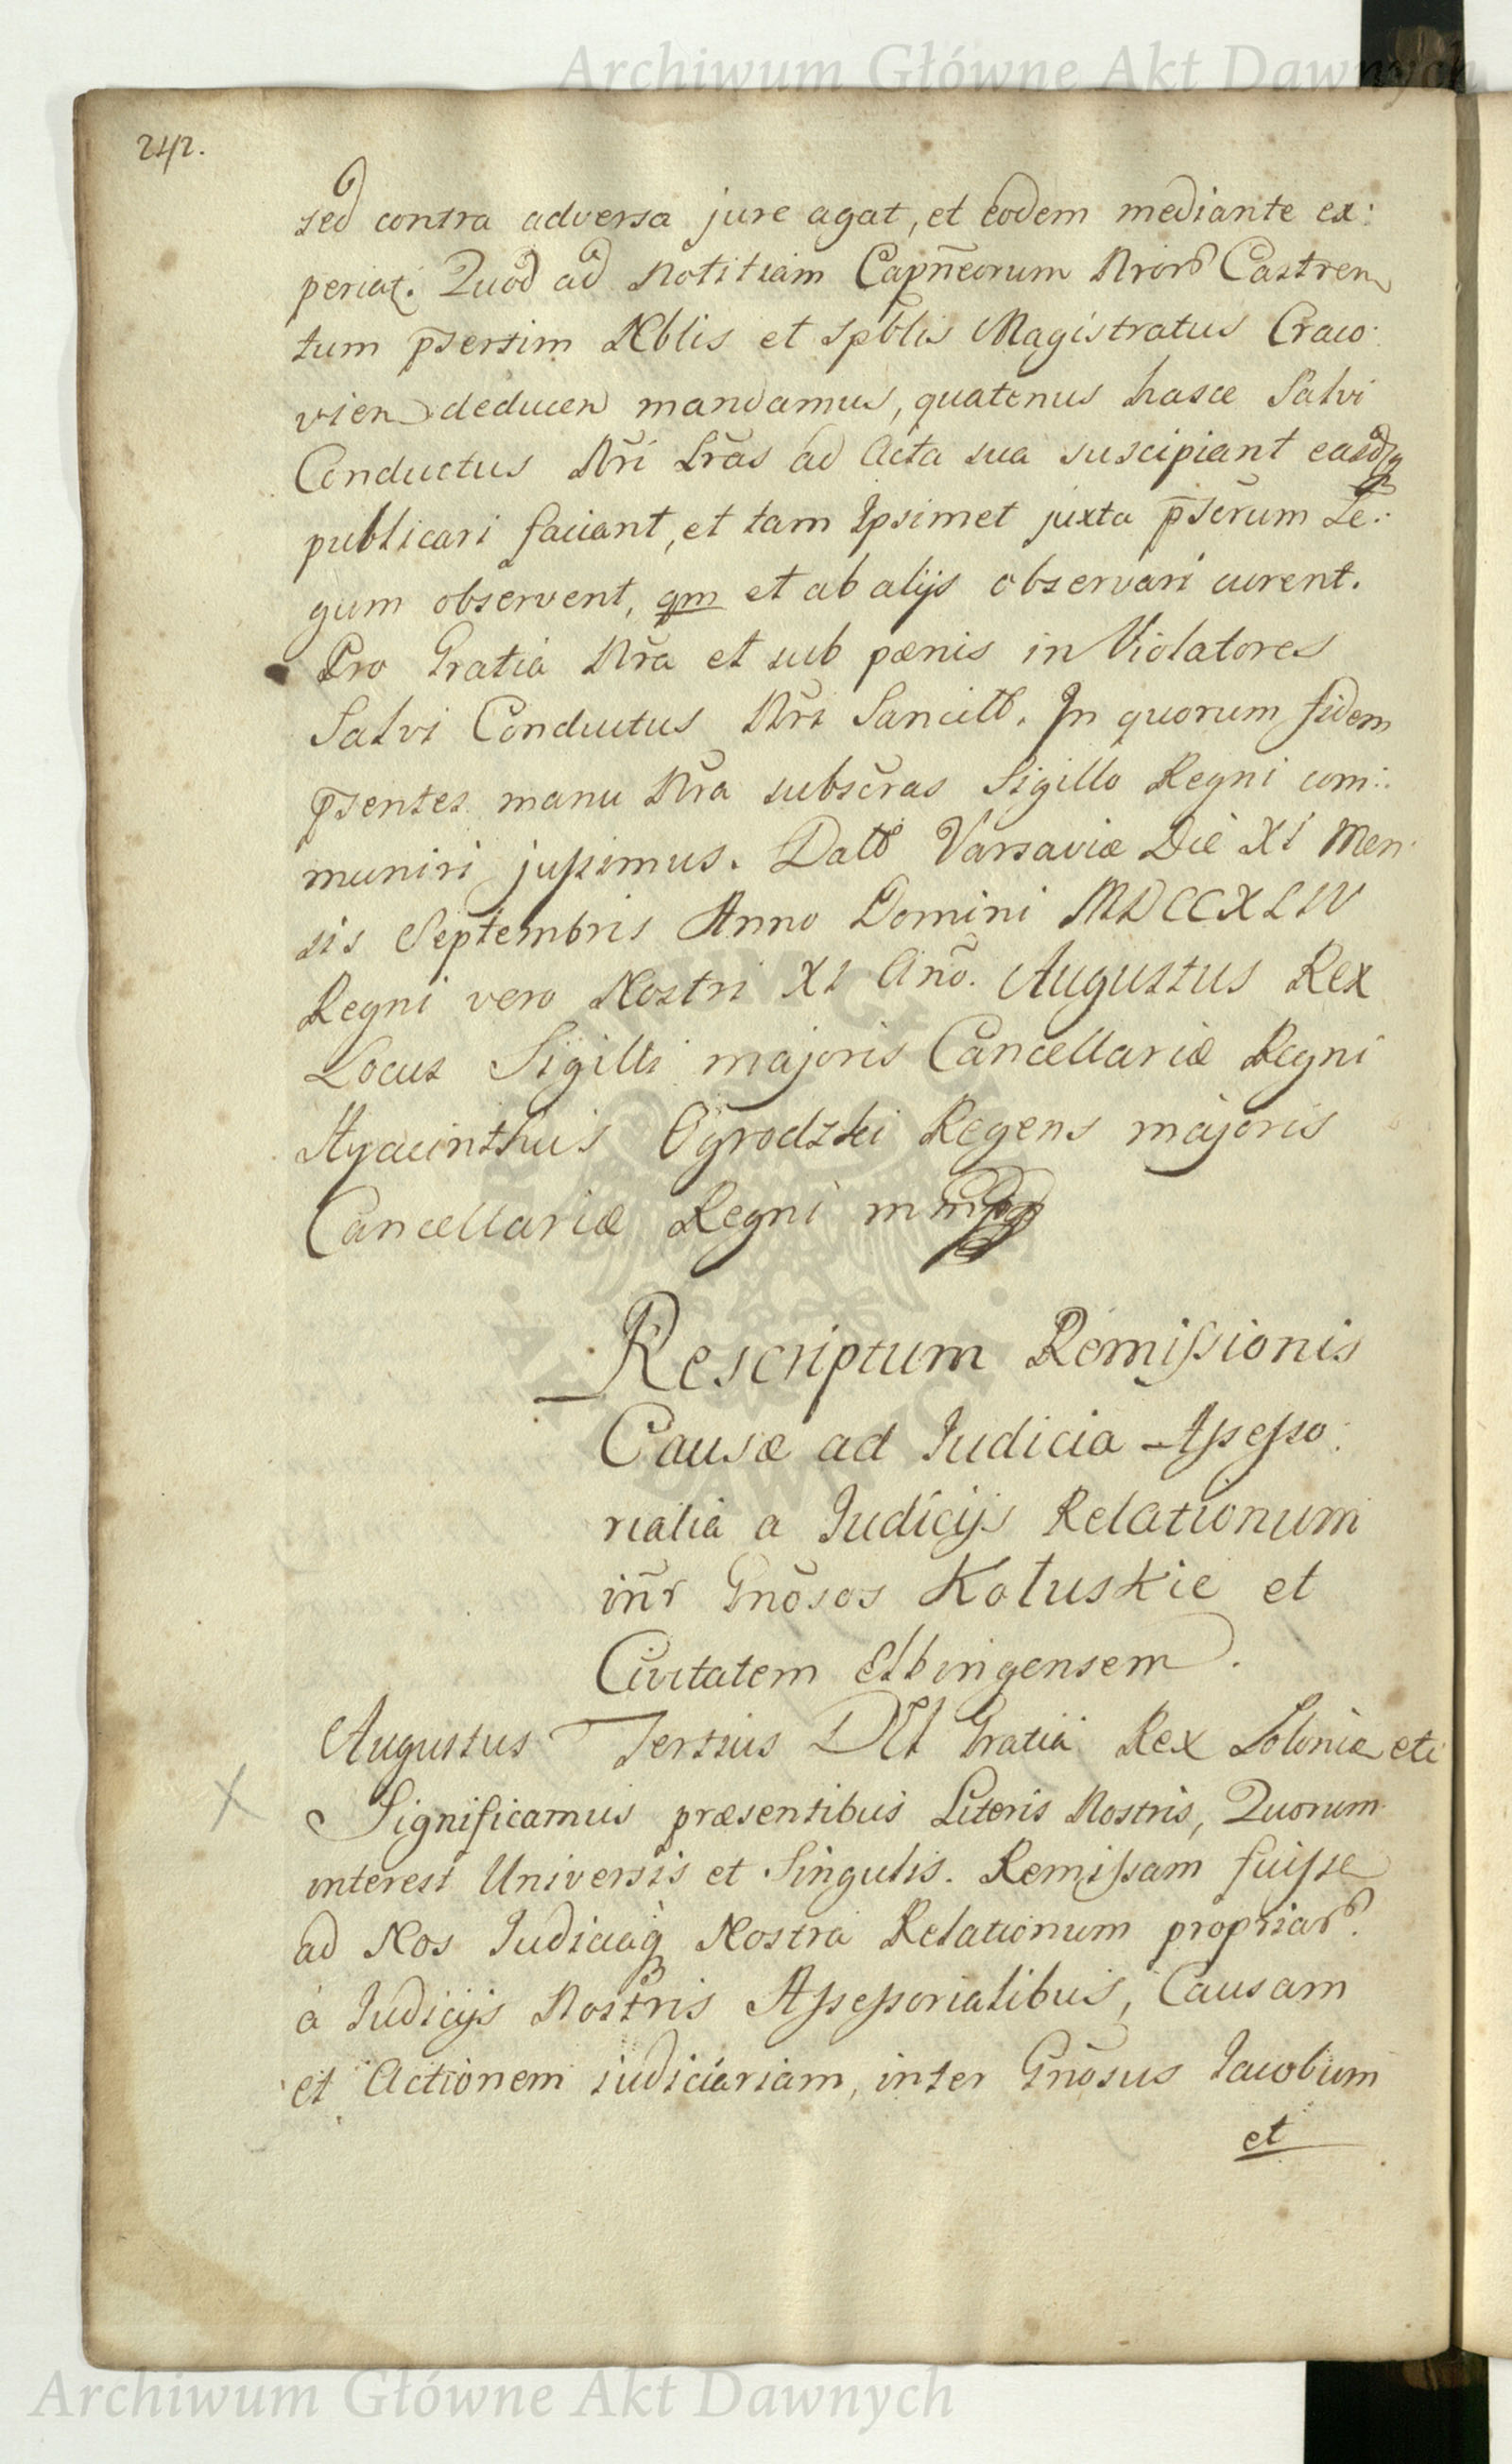 Archiwum Główne Akt Dawnych
242.
sed contra adversa jure agat, et eodem mediante ex:
periat. Quod ad Notitiam Capñeorum Nrorb Castren
tum p̄sertim Nblis et Spblis Magistratus Craco:
vien deducen mandamus, quatenus hasce Salvi
Conductus Nr̃i Lr̃as ad Acta sua suscipiant easdq
publicari faciant, et tam Ipsimet juxta p̄scrum Le:
gum observent, qm et ab alijs observari curent.
Pro Gratia Nr̃a et sub pœnis in Violatores
Salvi Conductus Nr̃i Sancitb. In quorum fidem
p̄sentes manu Nr̃a subscr̃as Sigillo Regni com:
muniri jussimus. Datb Varsaviæ Die XI Men:
sis Septembris Anno Domini MDCCXLIV
Regni vero Nostri XI Anõ. Augustus Rex
Locus Sigilli majoris Cancellariæ Regni
Hyacinthus Ogrodzki Regens majoris
Cancellariæ Regni mmpp
Rescriptum Remissionis
Causæ ad Judicia Assesso:
rialia a Judicijs Relationum
iñr Gnõsos Kotuskie et
Civitatem Elbingensem.
Augustus Tertius DEI Gratia Rex Poloniæ etc
Significamus præsentibus Literis Nostris, Quorum
interest Universis et Singulis. Remissam fuisse
ad Nos Judiciaq Nostra Relationum propriarb
à Judicijs Nostris Assessorialibus, Causam
et Actionem judiciariam, inter Gnõsus Jacobum
et
Archiwum Główne Akt Dawnych